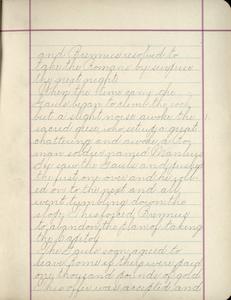 and Brennus resolved to
take the Romans by surprise
the next night.
When the time came the
Gauls began to climb the rock
but a slight noise awoke the
sacred geese, who set up a great
chattering and awoke a Ro-
man soldier named Manlius
He saw the Gauls and flung
the first one over and he rolled
on to the next and all
went tumbling down the
slope. This forced Brennus
to abandon the plan of taking
the Capitol.
The Gauls soon agreed to
leave Rome if they were paid
one thousand pounds of gold
This offer was accepted and